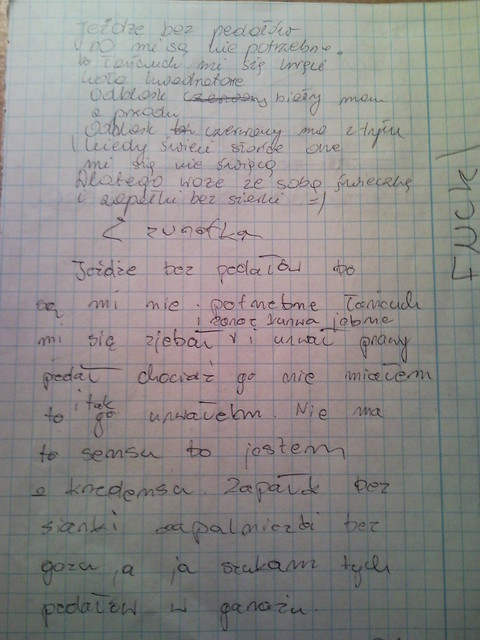 Jeżdże bez pedałów
bo mi są nie potrzebne.
to łańcuch mi się kręci
koła kwadratowe
Odblask czerwony biały mam
z przodu
Odblask czerwony ma z tyłu
kiedy świeci słońce one
mi się nie świecą
Dlatego woże ze sobą świeczkę
i zapałki bez siarki =)
Z zwrotka
Jeżdże bez pedałów bo
są mi nie potrzebne łańcuch
i zaraz kurwa jebne
mi się zjebał i urwał prawy
pedał chociaż go nie miałem
i tak
to go urwałebm. Nie ma
to sensu bo jestem
z kredensu. Zapałk bez
siarki zapalniczki bez
gazu, a ja szukam tych
pedałów w garażu.
FUCK